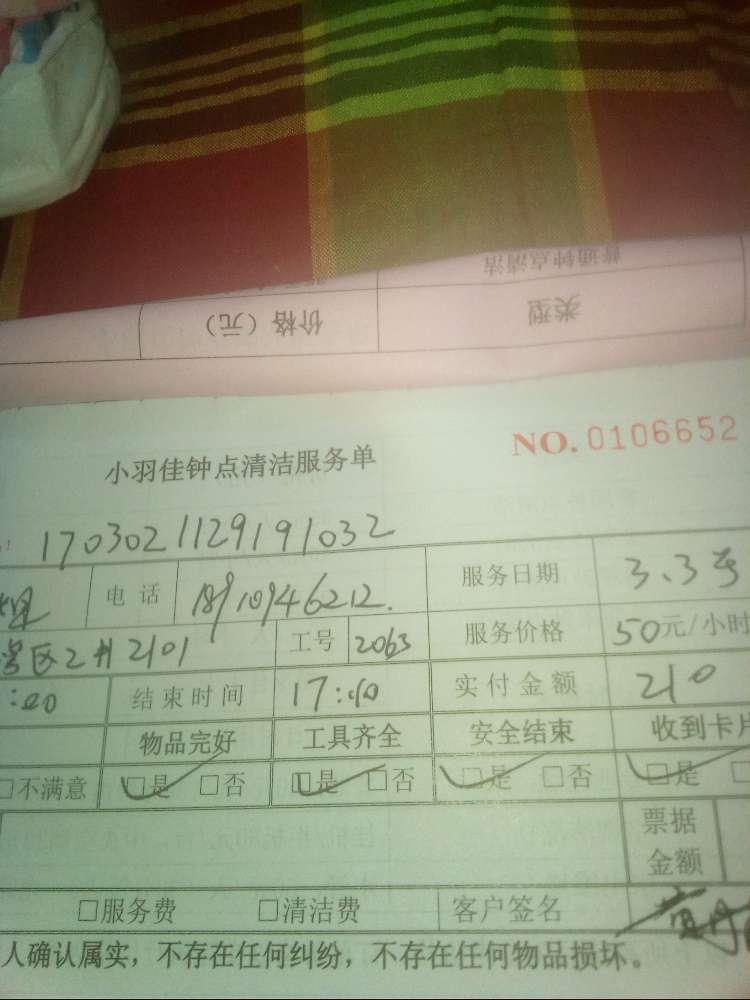 普通钟点清洁
类型 价格（元）
NO. 0106652
小羽佳钟点清洁服务单
1703021129191032
电话 18910946212. 服务日期 3.3号
区2井2101 工号 2063 服务价格 50元/小时
:00 结束时间 17:40 实付金额 210
物品完好 工具齐全 安全结束 收到卡片
□不满意 □是 □否 □是 □否 □是 □否 □是
票据金额
□服务费 □清洁费 客户签名
人确认属实，不存在任何纠纷，不存在任何物品损坏。